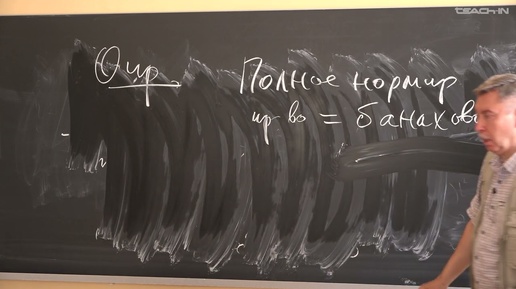 TEACH-IN
Опр Полное нормир
пр-во = банахово